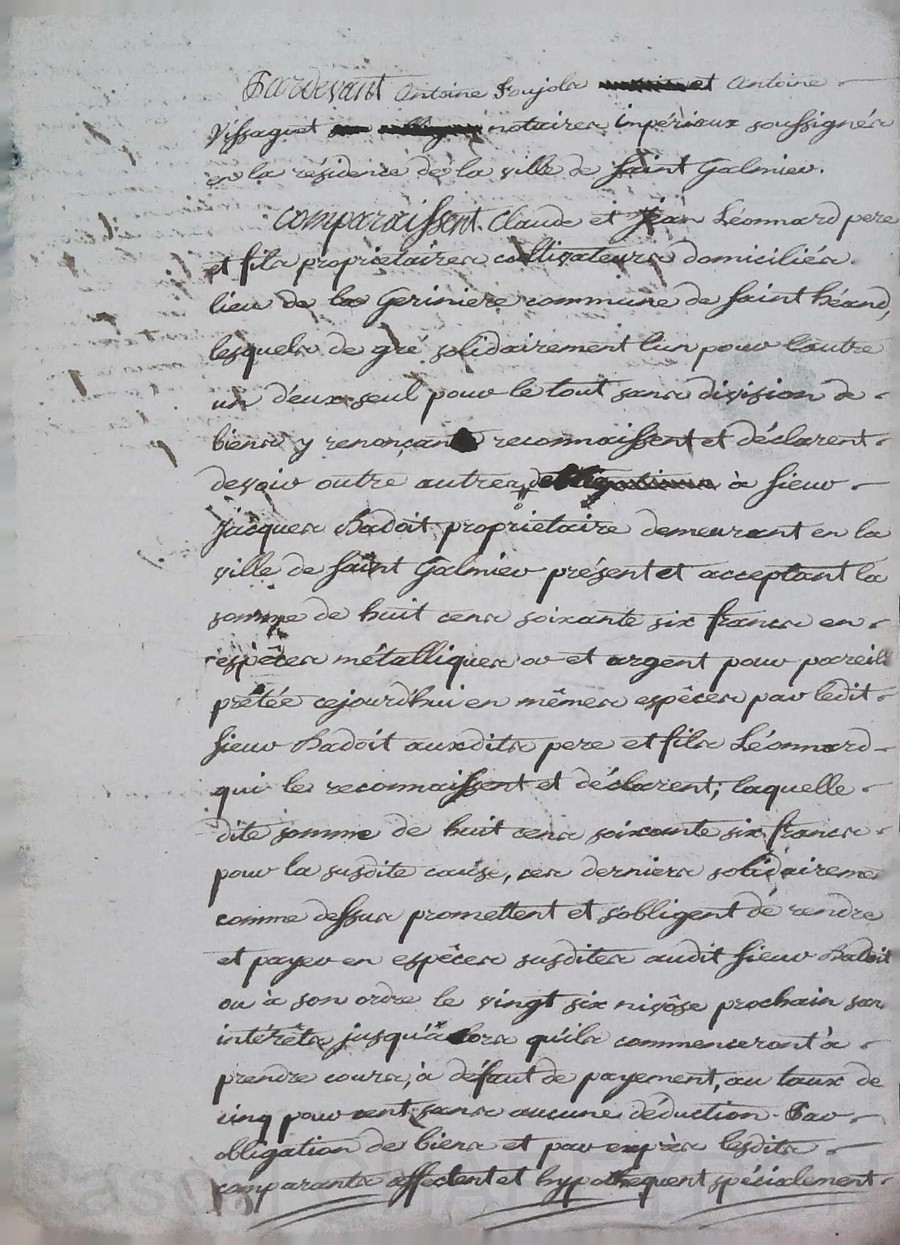 Pardevant Antoine Poujola et Antoine
Vissaguet notaires impériaux soussignés
en la résidence de la ville de Saint Galmier.
Comparaissent Claude et Jean Léonnard pere
et fils propriétaires cultivateurs domiciliés
lieu de la Geriniere commune de Saint héand,
lesquels de gré solidairement l'un pour l'autre
un d'eux seul pour le tout sans division de
biens y renonçant reconnaissent et déclarent
devoir outre autres à Sieur
Jacques Badoit propriétaire demeurant en la
ville de Saint Galmier présent et acceptant la
somme de huit cens soixante six francs en
espêces métalliques or et argent pour pareil
prétée cejourd'hui en mêmes espêces par ledit
Sieur Badoit auxdits pere et fils Léonnard
qui le reconnaissent et déclarent; laquelle
dite somme de huit cens soixante six francs
pour la susdite cause, ces derniers solidaireme
comme dessus promettent et s'obligent de rendre
et payer en espêces susdites audit Sieur Badoit
ou à son ordre le vingt six nivôse prochain san
intérêts jusqu'à lors qu'ils commenceront à
prendre cours, à défaut de payement, au taux de
cinq pour cent sans aucune déduction. Par
obligation de biens et par exprès lesdits
comparants affectent et hypothequent spécialement